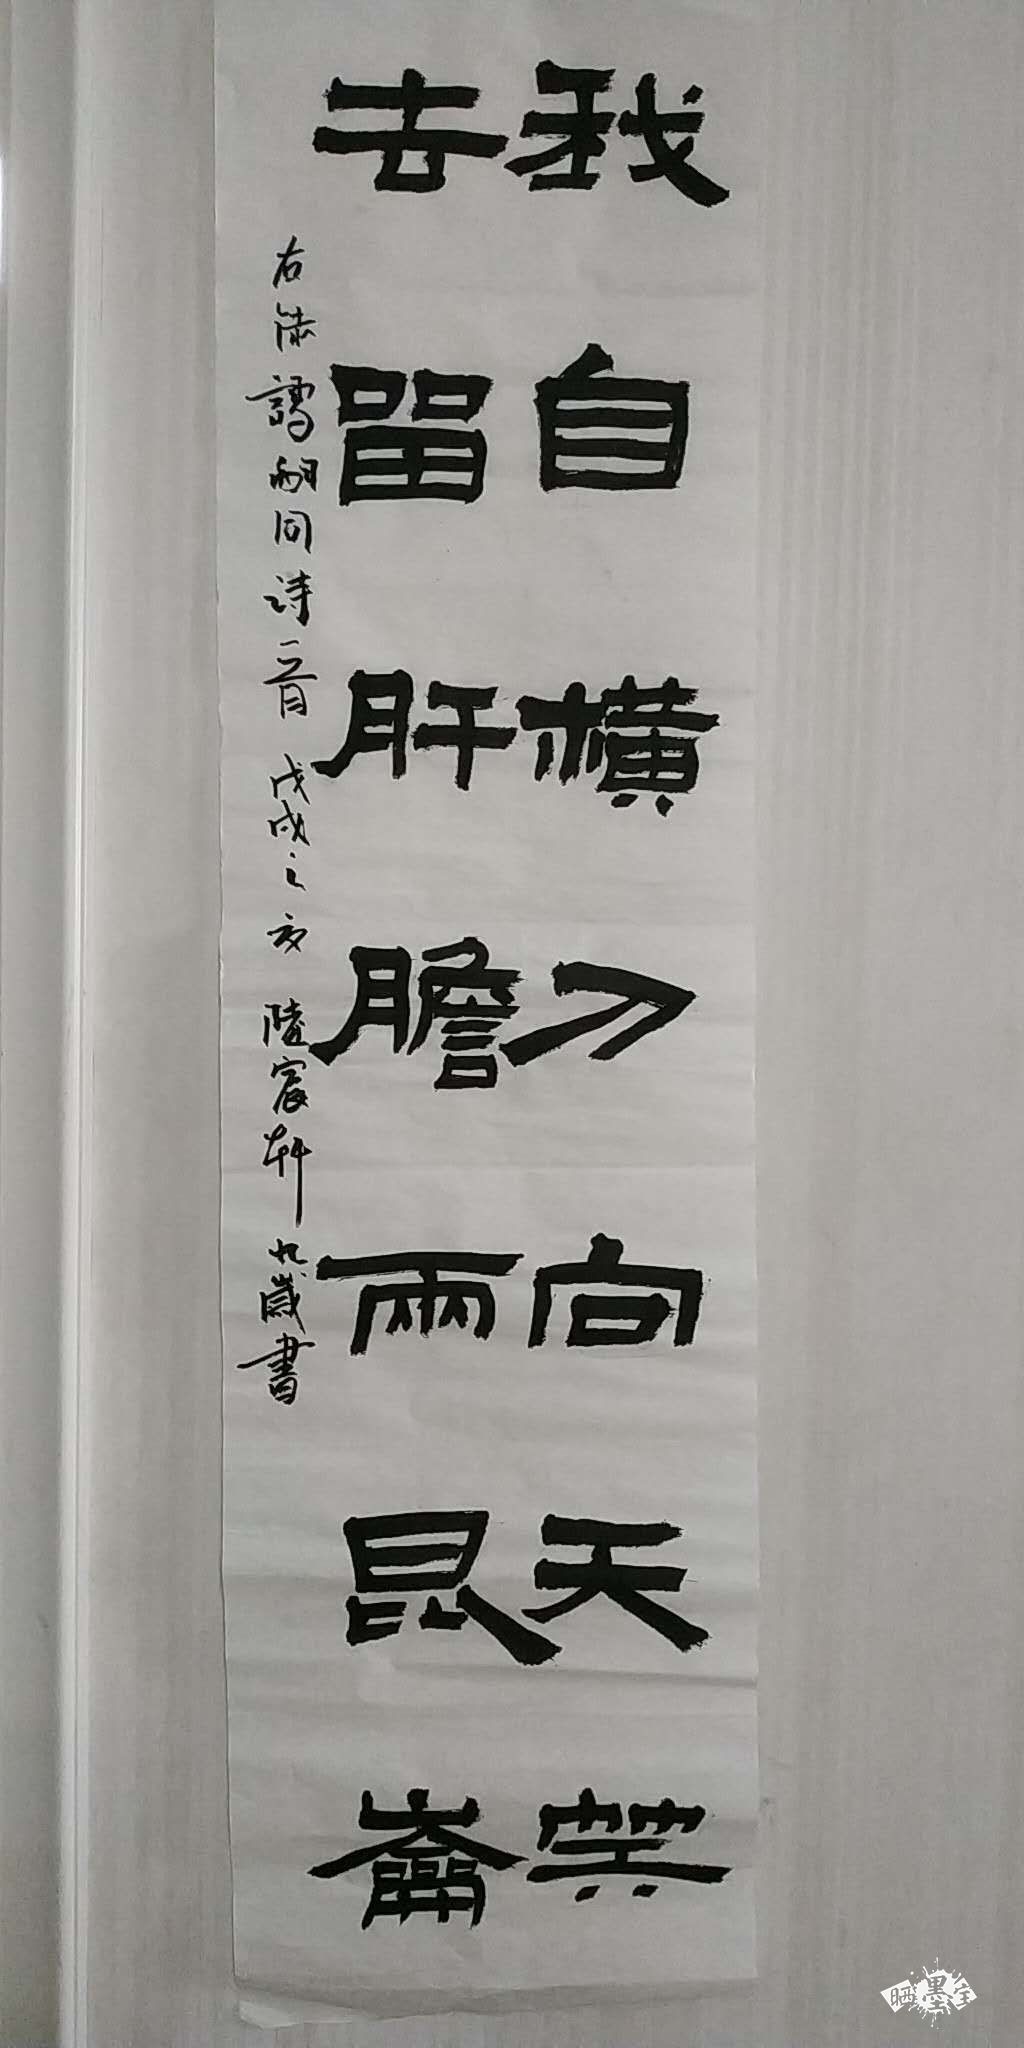 我自横刀向天笑
去留肝膽兩昆崙
右录譚嗣同詩一首 戊戌之夜 陸宸軒 九歲書
晒墨宝